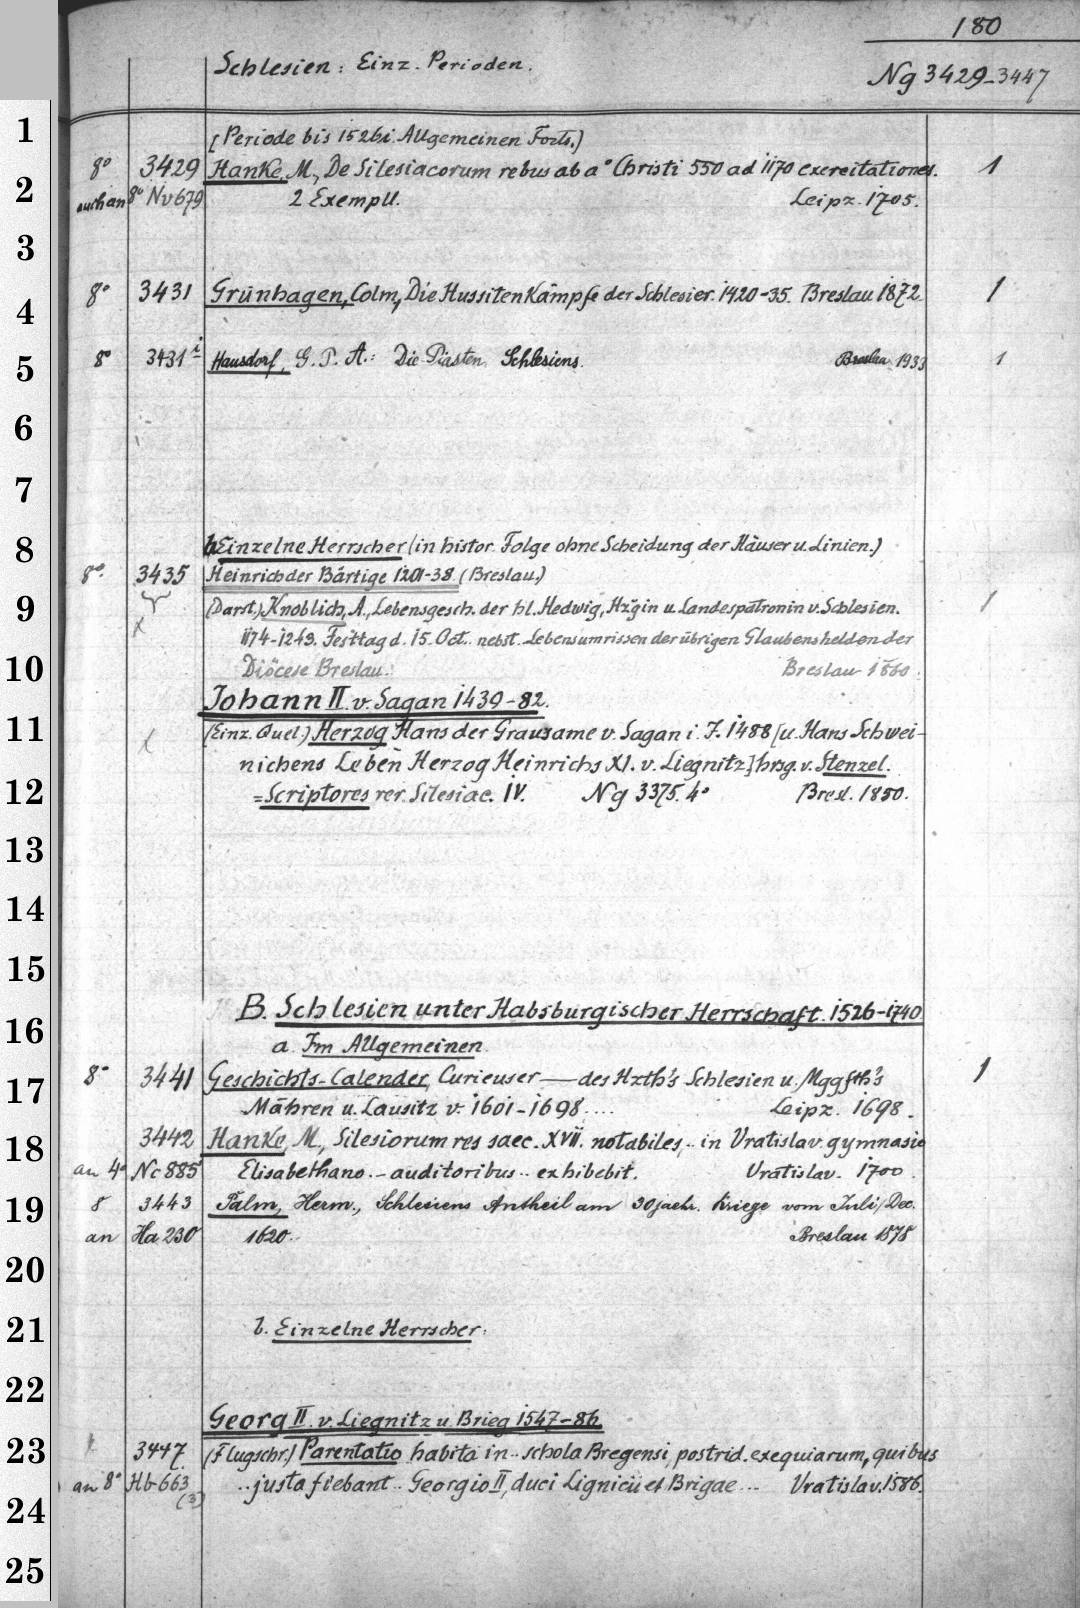 180
Schlesien: Einz. Perioden.
Ng 3429-3447
1
[Periode bis 1526i. Allgemeinen Forts.)
8° 3429 Hanke, M., De Silesiacorum rebus ab a° Christi 550 ad 1170 exercitationes. 1
2
auch an 8° Nv 679 2 Exempll. Leipz. 1705.
3
8° 3431 Grünhagen, Colm, Die Hussitenkämpfe der Schlesier. 1420-35. Breslau 1872. 1
4
8° 3431 i Hausdorf, G. P. A.: Die Piasten Schlesiens. Breslau 1933 1
5
6
7
8
b Einzelne Herrscher (in histor. Folge ohne Scheidung der Häuser u. Linien.)
8° 3435 Heinrich der Bärtige 1201-38. (Breslau.)
9
(Darst.) Knoblich, A., Lebensgesch. der hl. Hedwig, Hzgin u. Landespatronin v. Schlesien. 1
1174-1243. Festtag d. 15. Oct. nebst Lebensumrissen der übrigen Glaubenshelden der
10
Diöcese Breslau. Breslau 1860.
Johann II. v. Sagan 1439-82.
11
(Einz. Quel.) Herzog Hans der Grausame v. Sagan i. J. 1488 [u. Hans Schwei-
nichens Leben Herzog Heinrichs XI. v. Liegnitz] hrsg. v. Stenzel.
12
=Scriptores rer. Silesiac. IV. Ng 3375. 4° Bresl. 1850.
13
14
15
B. Schlesien unter Habsburgischer Herrschaft. 1526-1740
16
a Im Allgemeinen.
8° 3441 Geschichts-Calender, Curieuser — des Hzth's Schlesien u. Mggfth's 1
17
Mähren u. Lausitz v. 1601-1698.... Leipz. 1698.
3442 Hanke, M., Silesiorum res saec. XVII. notabiles,.. in Vratislav. gymnasio
18
an 4° Nc 885 Elisabethano.- auditoribus.. exhibebit. Vratislav. 1700.
19
8 3443 Palm, Herm., Schlesiens Antheil am 30jaehr. Kriege vom Juli/Dec.
an Ha 230 1620. Breslau 1878
20
21
b. Einzelne Herrscher.
22
Georg II. v. Liegnitz u. Brieg 1547-86.
23
3447. (Flugschr.) Parentatio habita in.. schola Bregensi, postrid. exequiarum, quibus
an 8° Hb 663 ..justa fiebant.. Georgio II, duci Lignicii et Brigae... Vratislav. 1586.
(3)
24
25